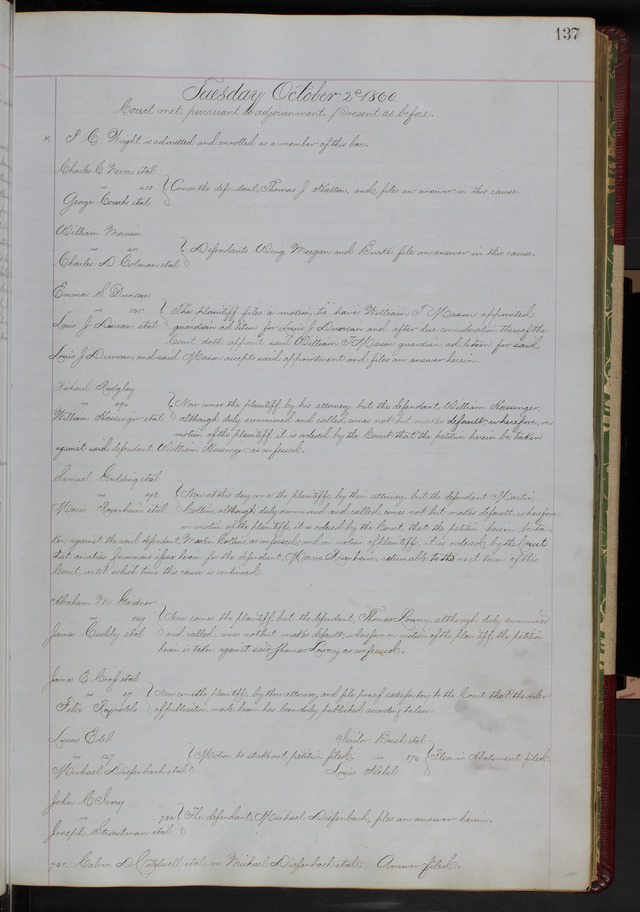 137
Tuesday October 2d 1860.
Court met pursuant to adjournment. Present as before.
Wright is admitted and enrolled as a member of this bar.
Charles C
vs
George etal
Comes the defendant, Thomas J and files an answer in this cause.
William
vs
Charles D. Colman etal
Defendants Wing and file an answer in this cause.
Emma S. Duncan
vs
Louis J. Duncan etal
The plaintiff files a motion to have William T. Mason appointed
guardian ad litem for Louis J. Duncan and after due consideration thereof the
Court doth appoint said William T. Mason guardian ad litem for said
Louis J. Duncan, and said Mason accepts said appointment and files an answer herein.
Richard Ridgley
vs
William Hassinger etal
Now comes the plaintiff, by his attorney but the defendant, William Hassinger,
although duly summoned and called, comes not but makes default; wherefore, on
motion of the plaintiff it is ordered by the Court that the petition herein be taken
against said defendant, William Hassinger as confessed.
Samuel etal
vs
Rosenheim etal
Now at this day come the plaintiffs, by their attorney but the defendant Martin
Collins, although duly summoned and called, comes not but makes default; wherefore
on motion of the plaintiffs, it is ordered by the Court that the petition herein be ta-
ken against the said defendant, Martin Collins, as confessed, and on motion of plaintiffs it is ordered by the Court
that an alias summons issue herein for the defendant, returnable to the next term of this
Court, until which time this cause is continued.
Abraham M. Gardner
vs
James Cuddy etal
Now comes the plaintiff but the defendant, Thomas Lowry, although duly summoned
and called, comes not but makes default; wherefore on motion of the plaintiff, the petition
herein is taken against said Thomas Lowry as confessed.
James E. Cross etal
vs 27
Felix Reynolds
Now come the plaintiffs, by their attorney, and file proof satisfactory to the Court that the order
of publication made herein has been duly published according to law.
Lucas Edel
vs
Michael Diefenbach etal
Motion to strike out petition filed.
Bush etal
vs
Louis
Plea in Abatement filed.
John C. Ivory
Joseph Strautman etal
The defendant, Michael Diefenbach, files an answer herein.
Calvin D. Caldwell etal vs Michael Diefenbach etal. Answer filed.